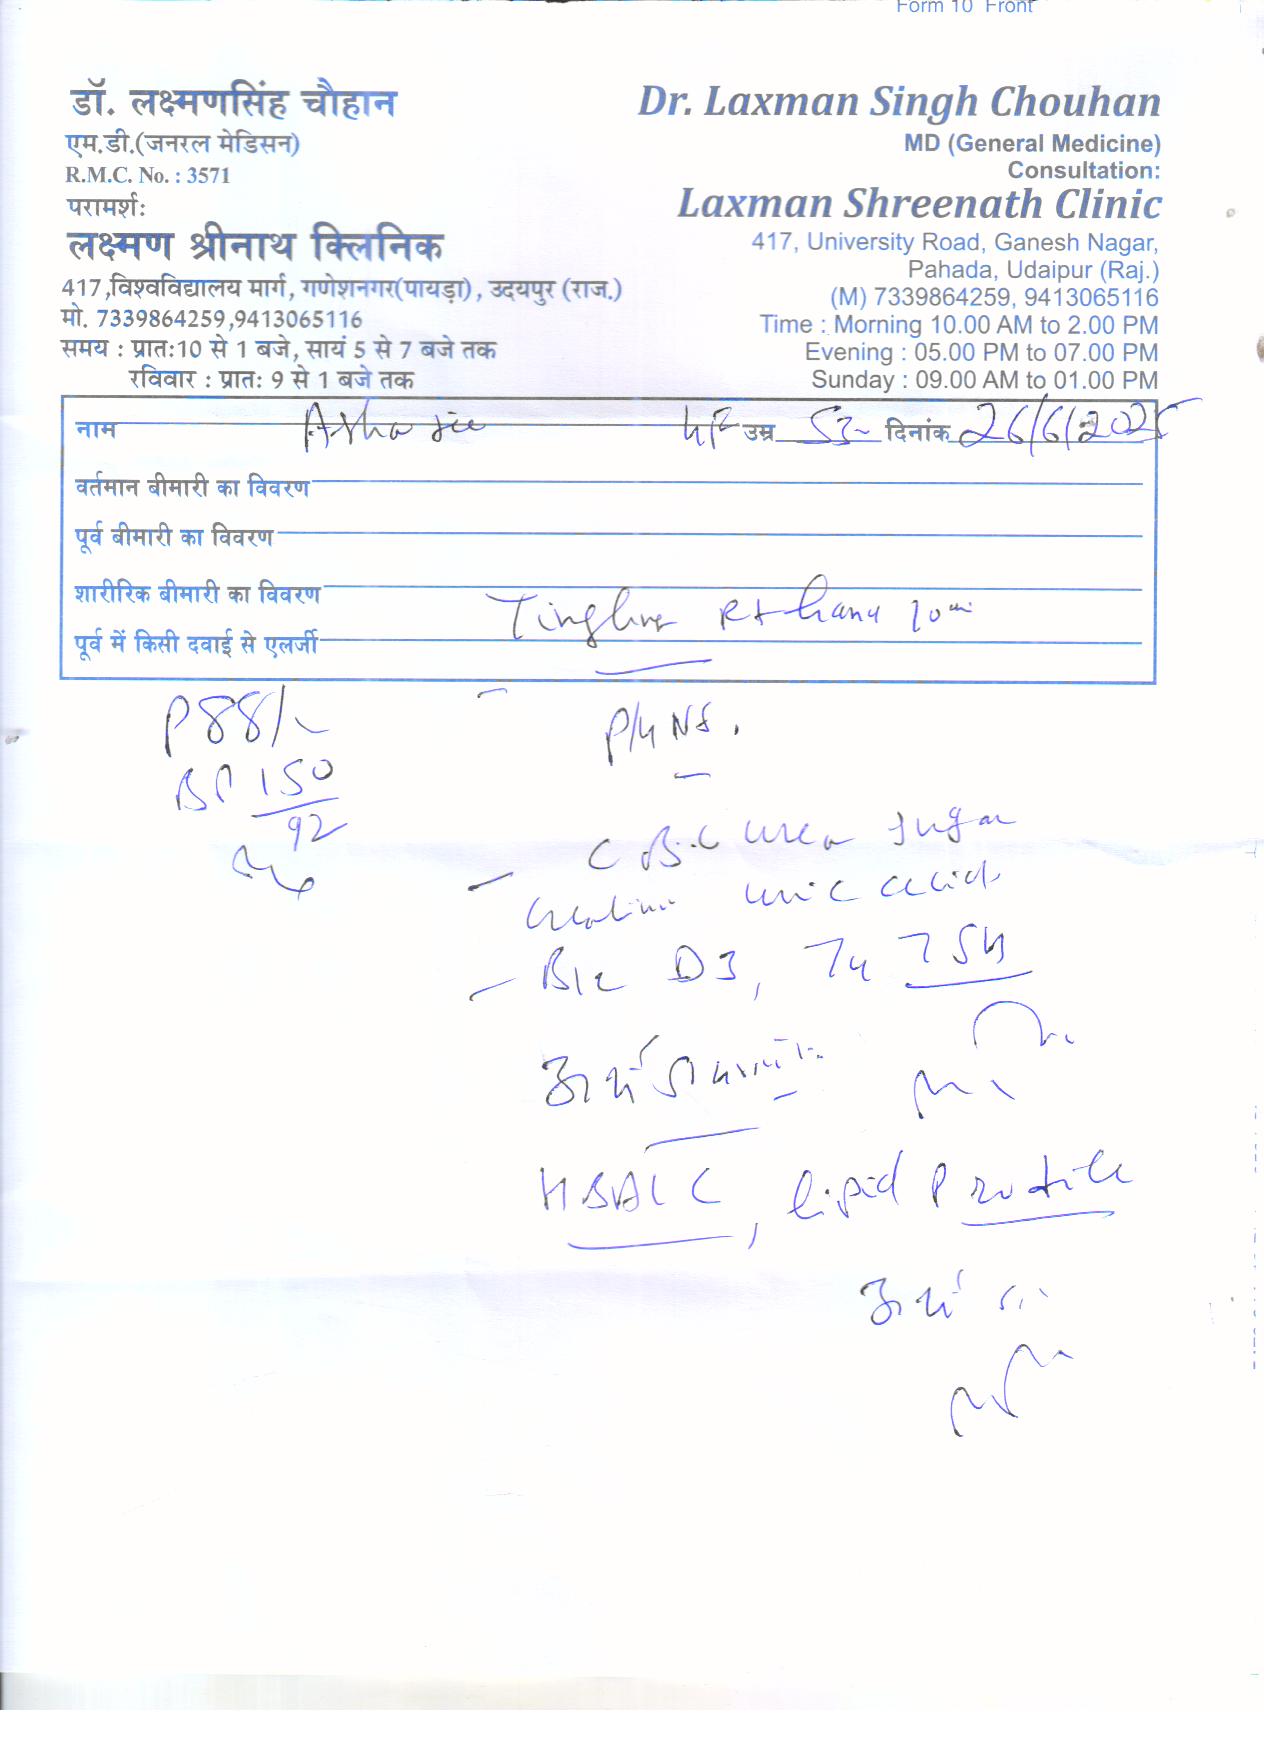 Form 10 Front
डॉ. लक्ष्मणसिंह चौहान
एम.डी.(जनरल मेडिसन)
R.M.C. No. : 3571
परामर्श:
लक्ष्मण श्रीनाथ क्लिनिक
417,विश्वविद्यालय मार्ग, गणेशनगर(पायड़ा), उदयपुर (राज.)
मो. 7339864259,9413065116
समय : प्रात:10 से 1 बजे, सायं 5 से 7 बजे तक
रविवार : प्रातः 9 से 1 बजे तक
Dr. Laxman Singh Chouhan
MD (General Medicine)
Consultation:
Laxman Shreenath Clinic
417, University Road, Ganesh Nagar,
Pahada, Udaipur (Raj.)
(M) 7339864259, 9413065116
Time : Morning 10.00 AM to 2.00 PM
Evening : 05.00 PM to 07.00 PM
Sunday : 09.00 AM to 01.00 PM
नाम Asha उम्र 53 दिनांक 26/6/2025
वर्तमान बीमारी का विवरण
पूर्व बीमारी का विवरण
शारीरिक बीमारी का विवरण
Tingling Rt hand
पूर्व में किसी दवाई से एलर्जी
P 88/
BP 150
92
P/H NS.
CBC urea sugar
creatinine uric acid
B12 D3, T4 TSH
HBA1C, lipid Profile